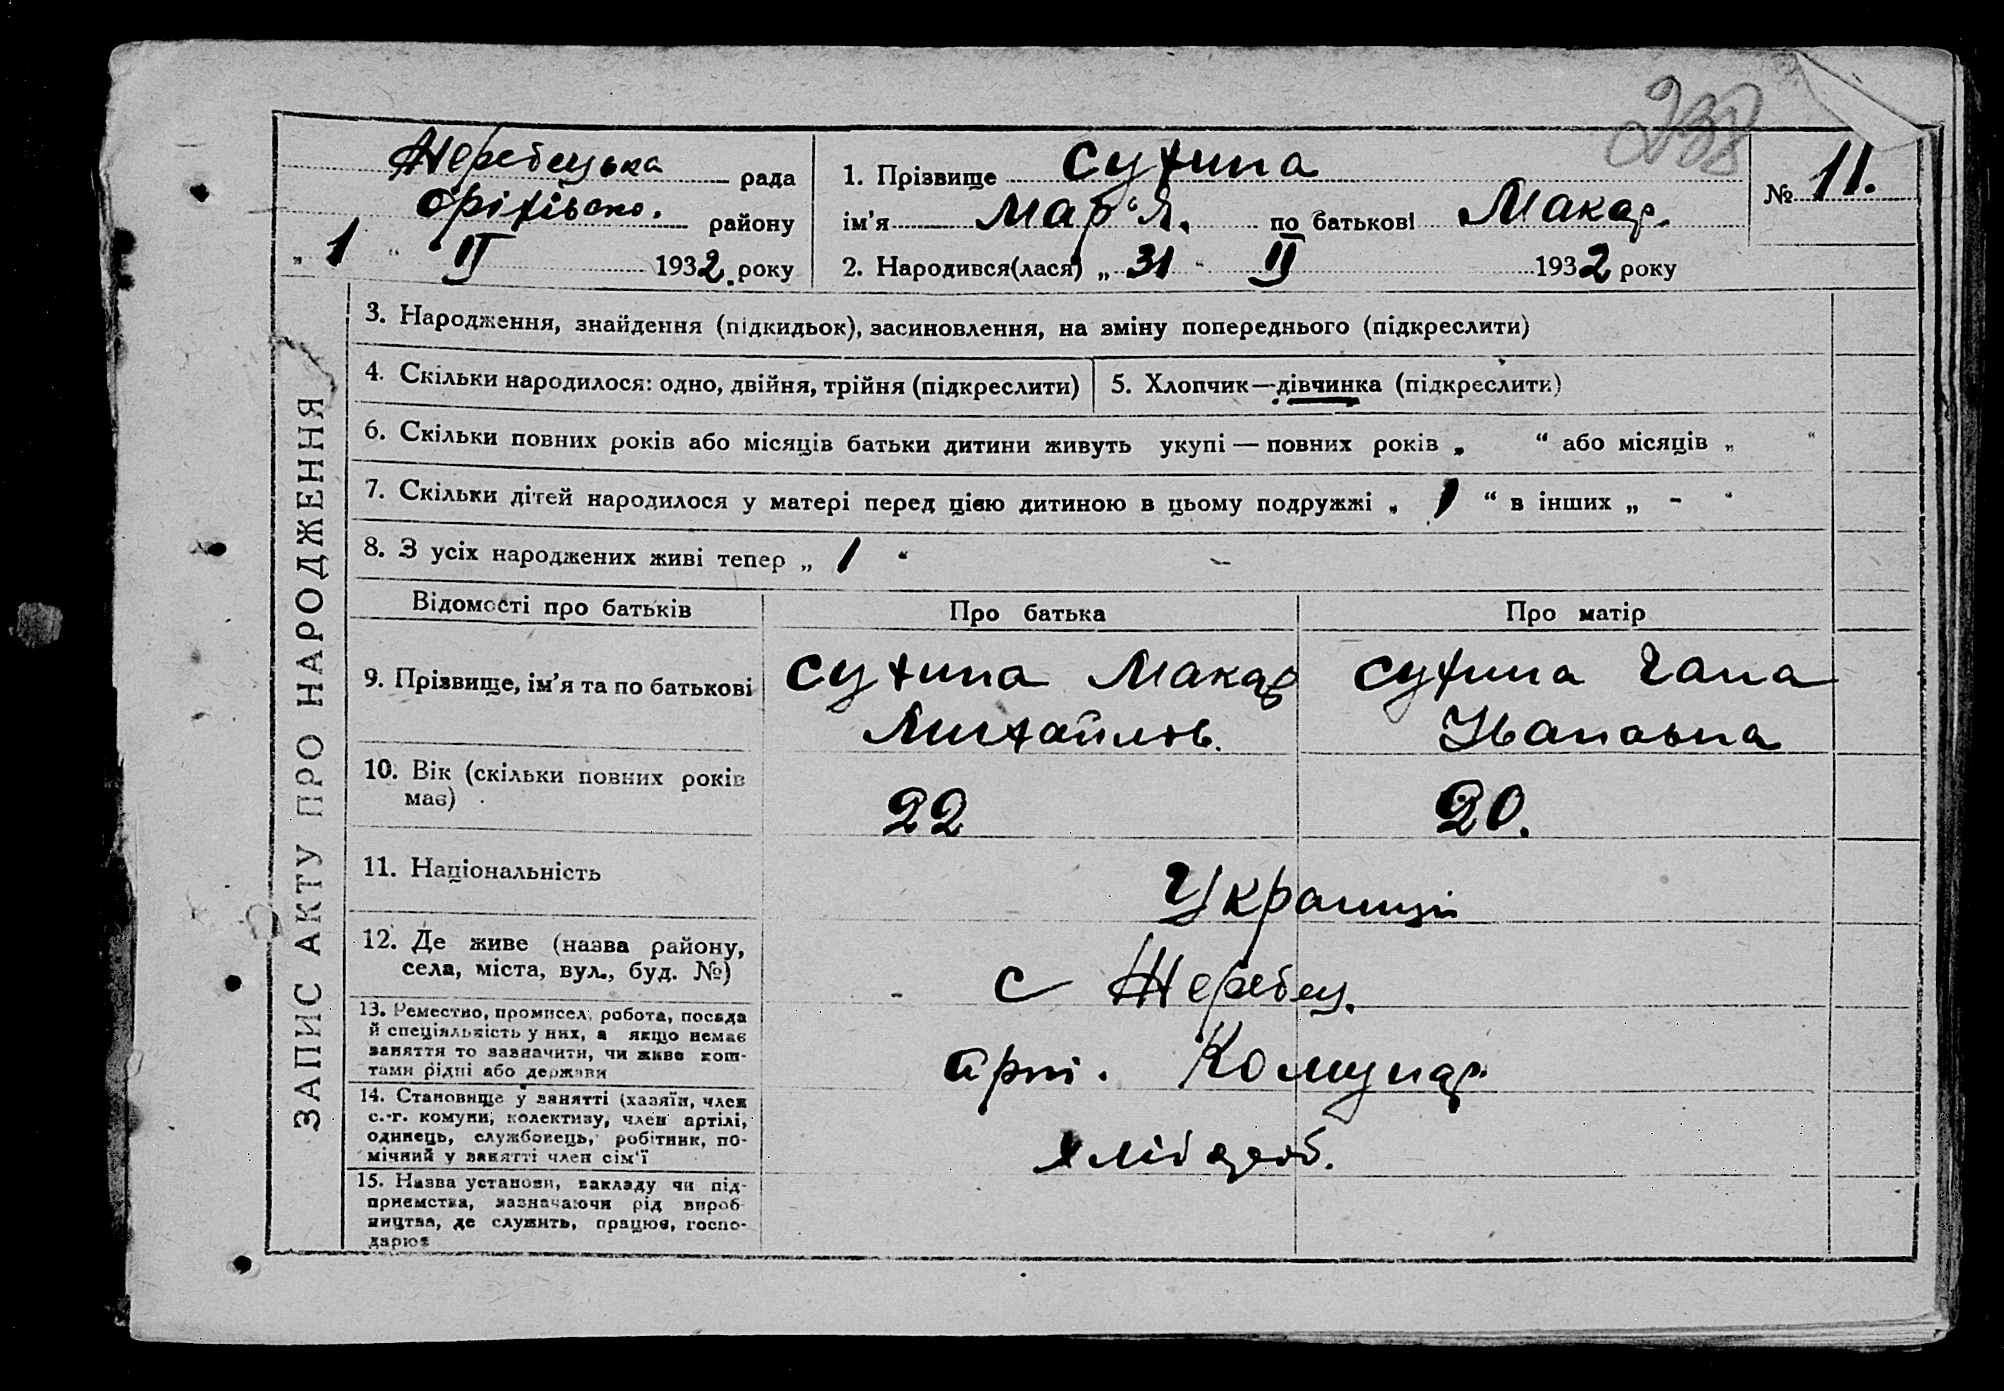 238
Жеребецька рада
Оріхівсько. району
„ 1 “ II 1932. року
1. Прізвище Сухина
ім’я Мар‘я. по батькові Макар.
2. Народився(лася) „ 31 “ II 1932 року
№ 11.
ЗАПИС АКТУ ПРО НАРОДЖЕННЯ
3. Народження, знайдення (підкидьок), засиновлення, на зміну попереднього (підкреслити)
4. Скільки народилося: одно, двійня, трійня (підкреслити)
5. Хлопчик—дівчинка (підкреслити)
6. Скільки повних років або місяців батьки дитини живуть укупі — повних років „ “ або місяців „ “
7. Скільки дітей народилося у матері перед цією дитиною в цьому подружжі „ 1 “ в інших „ - “
8. З усіх народжених живі тепер „ 1 “ –
Відомості про батьків
Про батька
Про матір
9. Прізвище, ім’я та по батькові
Сухина Макар
Михайлов.
Сухина Гана
Ивановна
10. Вік (скільки повних років
має)
22
20.
11. Національність
Українці
12. Де живе (назва району,
села, міста, вул., буд. №)
с Жеребец.
13. Ремество, промисел, робота, посада
й спеціяльність у них, а якщо немає
заняття то зазначити, чи живе кош-
тами рідні або держави
арт. Комунар
14. Становище у занятті (хазяїн, член
с.-г. комуни, колективу, член артілі,
одинець, службовець, робітник, по-
мічний у занятті член сім’ї
хлібороб.
15. Назва установи, закладу чи під-
приемства, зазначаючи рід вироб-
ництва, де служить, працює, госпо-
дарює